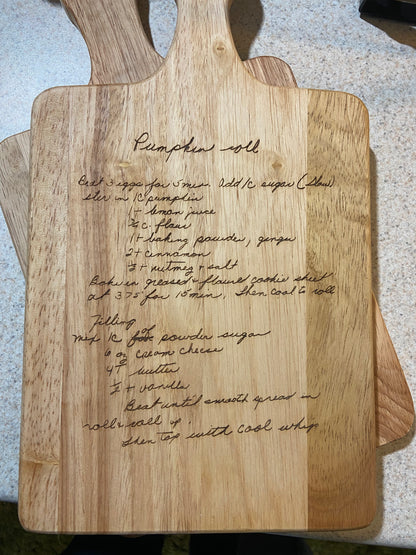 Pumpkin roll
Beat 3 eggs for 5 min. Add 1C sugar (slow)
stir in 1C pumpkin
1 t lemon juice
¾ C. flour
1 t baking powder, ginger
2 t cinnamon
½ t nutmeg & salt
Bake in greased & floured cookie sheet
at 375 for 15 min. Then cool & roll
Filling
Mix 1C of powder sugar
6 oz cream cheese
4T butter
½ t vanilla
Beat until smooth spread in
roll & roll up.
Then top with cool whip